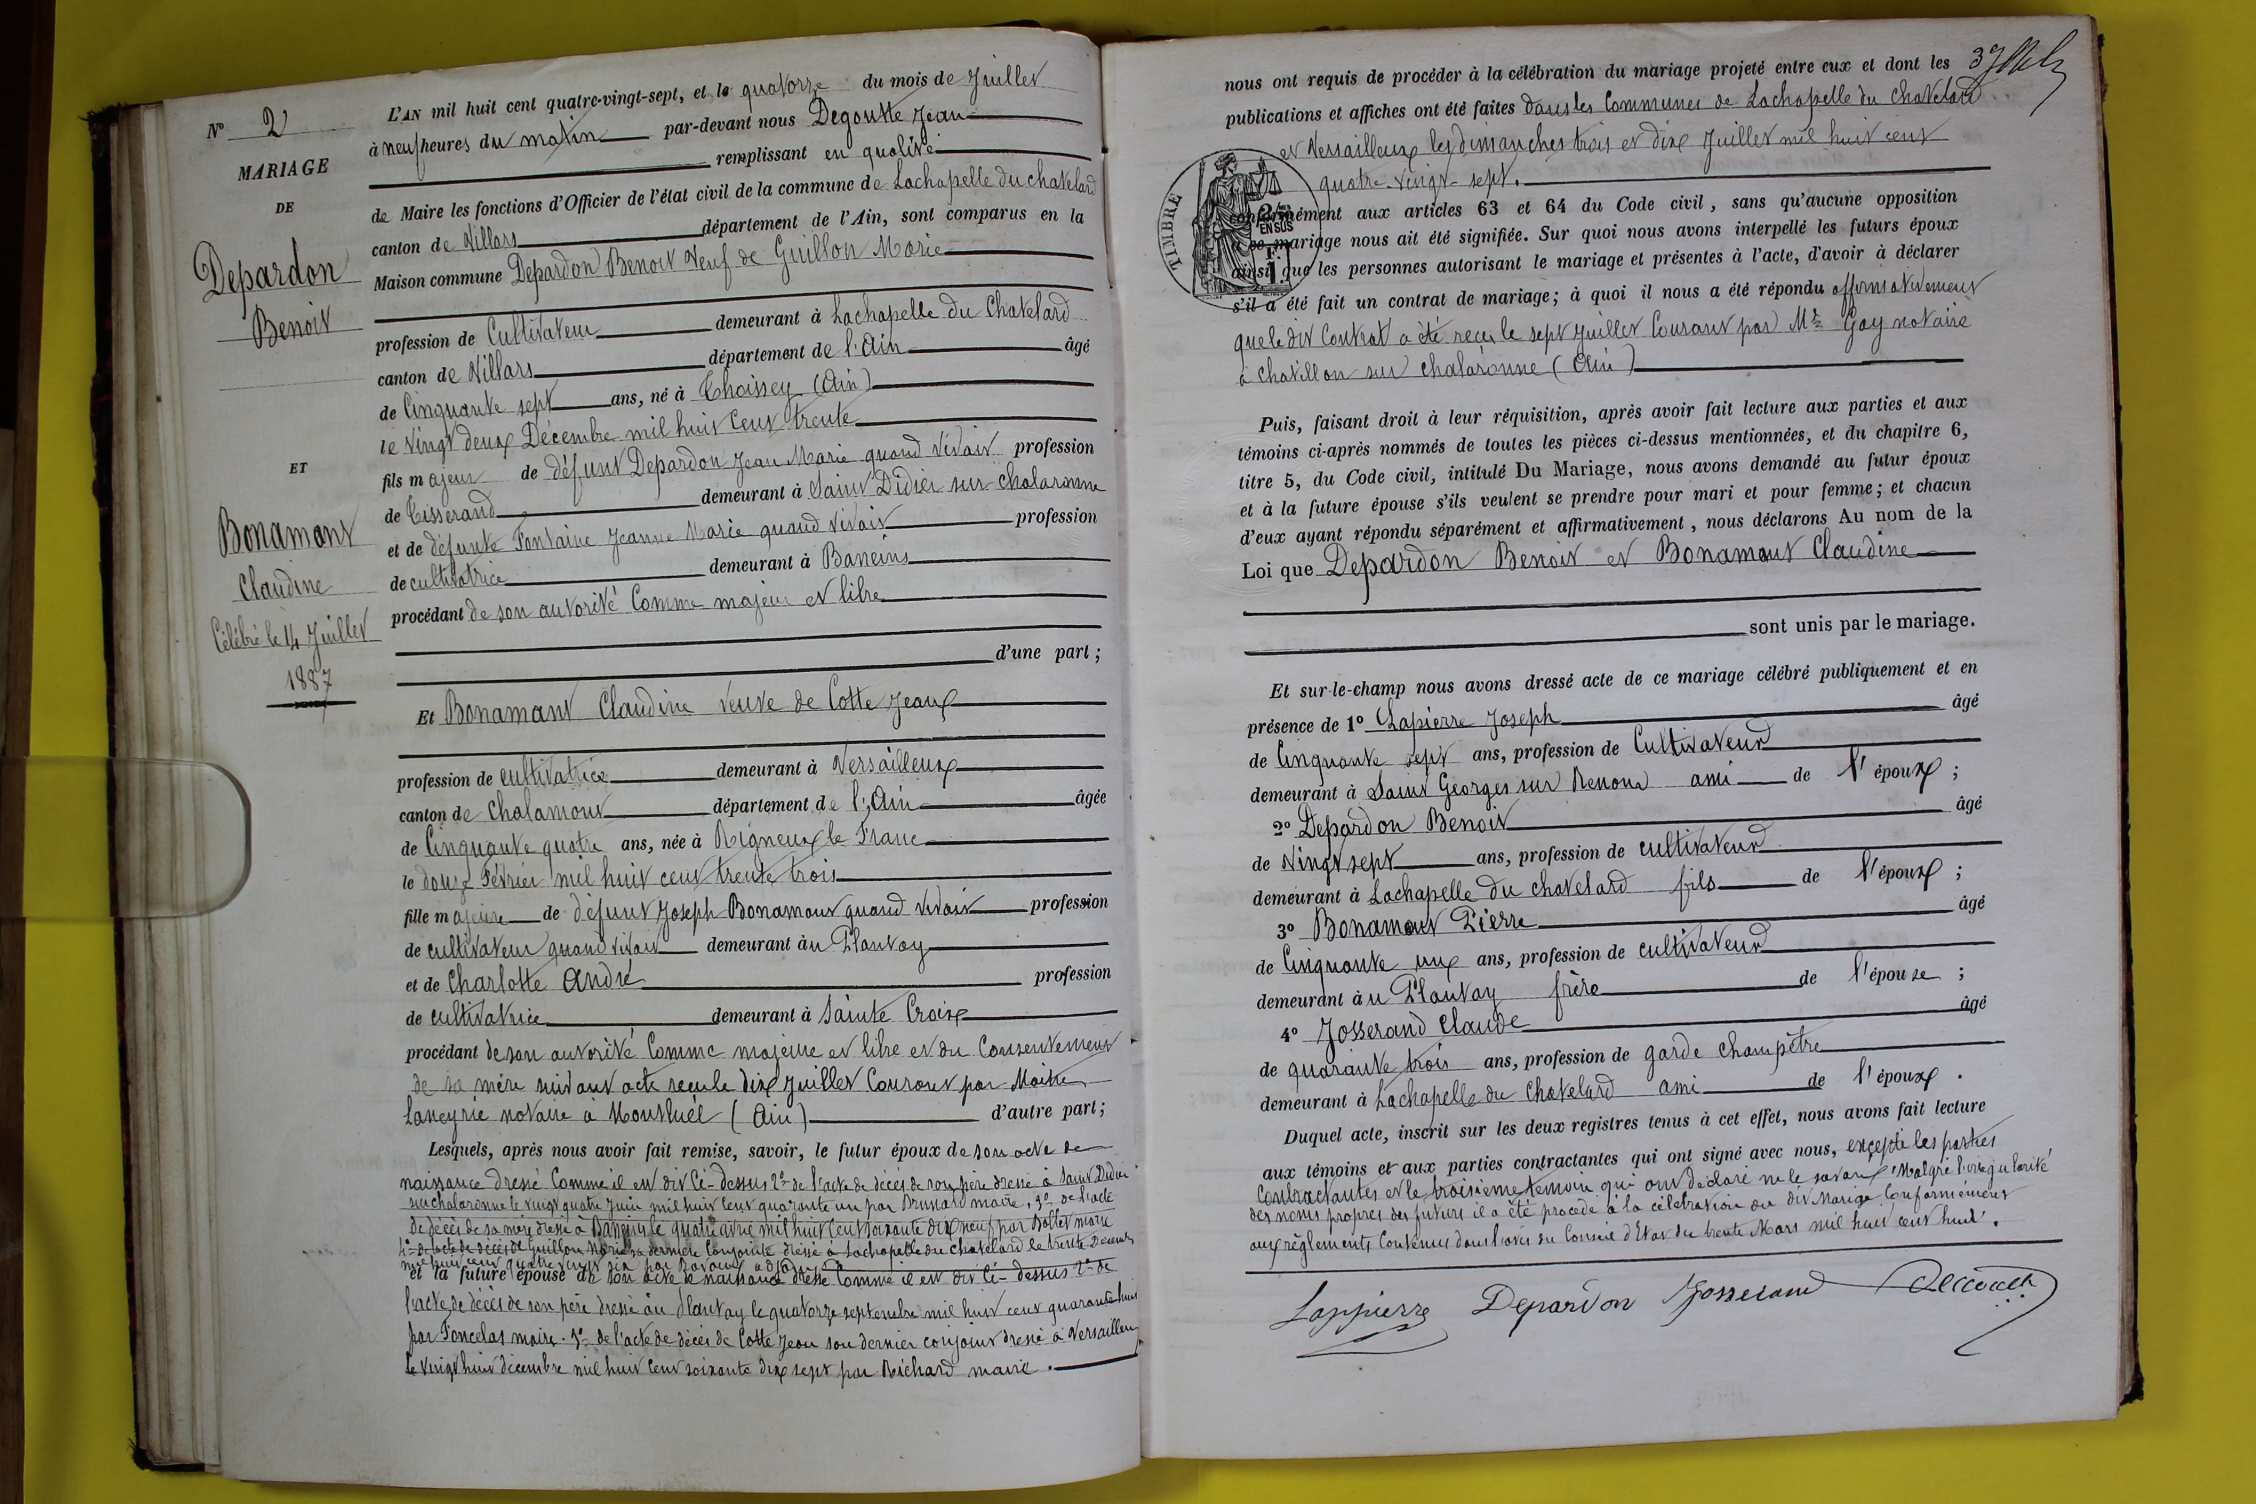 N° 2
MARIAGE
DE
Depardon
Benoit
ET
Bonamant
Claudine
Célébré le 14 Juillet
1887
L'AN mil huit cent quatre-vingt-sept, et le quatorze du mois de Juillet
à neuf heures du matin par-devant nous Degoutte Jean
remplissant en qualité
de Maire les fonctions d'Officier de l'état civil de la commune de Lachapelle du chatelard
canton de Villars département de l'Ain, sont comparus en la
Maison commune Depardon Benoit Veuf de Guillon Marie
profession de Cultivateur demeurant à Lachapelle du Chatelard
canton de Villars département de l'Ain âgé
de Cinquante sept ans, né à Thoissey (Ain)
le vingt deux Décembre mil huit cent trente
fils majeur de défunt Depardon Jean Marie quand vivait profession
de Tisserand demeurant à Saint Didier sur chalaronne
et de défunte Fontaine Jeanne Marie quand vivait profession
de cultivatrice demeurant à Baneins
procédant de son autorité Comme majeur et libre
d'une part;
Et Bonamant Claudine veuve de Cotte Jean
profession de cultivatrice demeurant à Versailleux
canton de Chalamont département de l'Ain âgée
de Cinquante quatre ans, née à Rigneux le Franc
le douze Février mil huit cent trente trois
fille majeure de défunt Joseph Bonamant quand vivait profession
de cultivateur quand vivait demeurant au Plantay
et de Charlotte André profession
de cultivatrice demeurant à Sainte Croix
procédant de son autorité Comme majeure et libre et du Consentement
de sa mère suivant acte reçu le dix Juillet Courant par Maitre
Laneyrie notaire à Montluel (Ain) d'autre part;
Lesquels, après nous avoir fait remise, savoir, le futur époux de son acte de
naissance dressé Comme il est dit Ci-dessus 2° de l'acte de décès de son père dressé à Saint Didier
sur chalaronne le vingt quatre Juin mil huit cent quarante un par Brunard maire, 3° de l'acte
de décès de sa mère dressé à Baneins le quatre avril mil huit cent soixante dix neuf par maire
4° de l'acte de décès de Guillon Marie sa dernière Conjointe dressé à Lachapelle du chatelard le trente Décembre
mil huit cent quatre vingt six par
et la future épouse de son acte de naissance dressé Comme il est dit Ci-dessus 2° de
l'acte de décès de son père dressé au Plantay le quatorze septembre mil huit cent quarante huit
par Poncelas maire. 3° de l'acte de décès de Cotte Jean son dernier conjoint dressé à Versailleux
le vingt huit décembre mil huit cent soixante dix sept par Richard maire.
nous ont requis de procéder à la célébration du mariage projeté entre eux et dont les
publications et affiches ont été faites dans les Communes de Lachapelle du Chatelard
et Versailleux les dimanches trois et dix Juillet mil huit cent
quatre-vingt-sept.
TIMBRE
EN SUS
conformément aux articles 63 et 64 du Code civil, sans qu'aucune opposition
à ce mariage nous ait été signifiée. Sur quoi nous avons interpellé les futurs époux
ainsi que les personnes autorisant le mariage et présentes à l'acte, d'avoir à déclarer
s'il a été fait un contrat de mariage; à quoi il nous a été répondu affirmativement
que le dit Contrat a été reçu le sept Juillet Courant par Me Gay notaire
à Chatillon sur chalaronne (Ain)
Puis, faisant droit à leur réquisition, après avoir fait lecture aux parties et aux
témoins ci-après nommés de toutes les pièces ci-dessus mentionnées, et du chapitre 6,
titre 5, du Code civil, intitulé Du Mariage, nous avons demandé au futur époux
et à la future épouse s'ils veulent se prendre pour mari et pour femme; et chacun
d'eux ayant répondu séparément et affirmativement, nous déclarons Au nom de la
Loi que Depardon Benoit et Bonamant Claudine
sont unis par le mariage.
Et sur-le-champ nous avons dressé acte de ce mariage célébré publiquement et en
présence de 1° Lapierre Joseph âgé
de Cinquante sept ans, profession de Cultivateur
demeurant à Saint Georges sur Renon ami de l'époux;
2° Depardon Benoit âgé
de Vingt sept ans, profession de cultivateur
demeurant à Lachapelle du chatelard fils de l'époux;
3° Bonamant Pierre âgé
de Cinquante un ans, profession de cultivateur
demeurant au Plantay frère de l'épouse;
4° Josserand Claude âgé
de quarante trois ans, profession de garde champêtre
demeurant à Lachapelle du Chatelard ami de l'époux.
Duquel acte, inscrit sur les deux registres tenus à cet effet, nous avons fait lecture
aux témoins et aux parties contractantes qui ont signé avec nous, excepté les parties
Contractantes et le troisième témoin qui ont déclaré ne le savoir. Malgré l'irrégularité
des noms propres des futurs il a été procédé à la célébration du dit Mariage Conformément
aux règlements Contenus dans l'avis du Conseil d'Etat du trente Mars mil huit cent huit.
Lappierre Depardon Josserand Degoutte